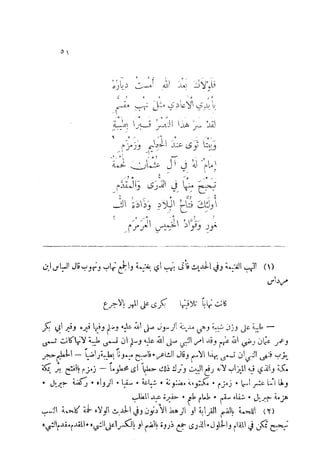 ٥١
فلولاك بعد الله أمست ديارهُ
بأيدي الأعادي مثل نهبٍ مقسّمِ
لقد سرّ هذا النصر قبراً بطيبةٍ
وبيتاً ثوى عند الحطيم وزمزمِ
إمامٌ له في آل عثمان لحمةٌ
تبحبح منها في الذرى والمقدّمِ
أولئك فتّاح البلاد وذادة الثـ
ـغور وقوّاد الخميس العرمرمِ
(١) النهب الغنيمة وفي الحديث فأتى بنهب اي بغنيمة والجمع نهاب ونهوب قال العباس ابن
مرداس
كانت نهاباً تلافيتها بكري على المهر بالاجرع
— طيبة على وزن شيبة وهي مدينة الرسول صلى الله عليه وسلم وفيها قبره وقبر ابي بكر
وعمر رضي الله عنهم وقد امر النبي صلى الله عليه وسلم ان تسمى طيبة لانها كانت تسمى
يثرب فنهى النبي ان تسمى بهذا الاسم وقال الشاعر • فأصبح ميموناً بطيبة راضياً — الحطيم حجر
مكة والذي فيه الميزاب لانه رفع البيت وترك ذلك حطيماً اي محطوماً — زمزم بالفتح بئر بمكة
ولها اثنا عشر اسما • زمزم • مكتومة • مضنونة • شباعة • سقيا • الرواء • ركضة جبريل •
هزمة جبريل • شفاء سقم • طعام طعم • حفيرة عبد المطلب
(٢) اللحمة بالضم القرابة او الرهط الأدنون وفي الحديث الولاء لحمة كلحمة النسب
تبحبح تمكن في المقام والحلول • الذرى جمع ذروة بالضم او بالكسر اعلى الشيء • المقدم مقدم الشيء •